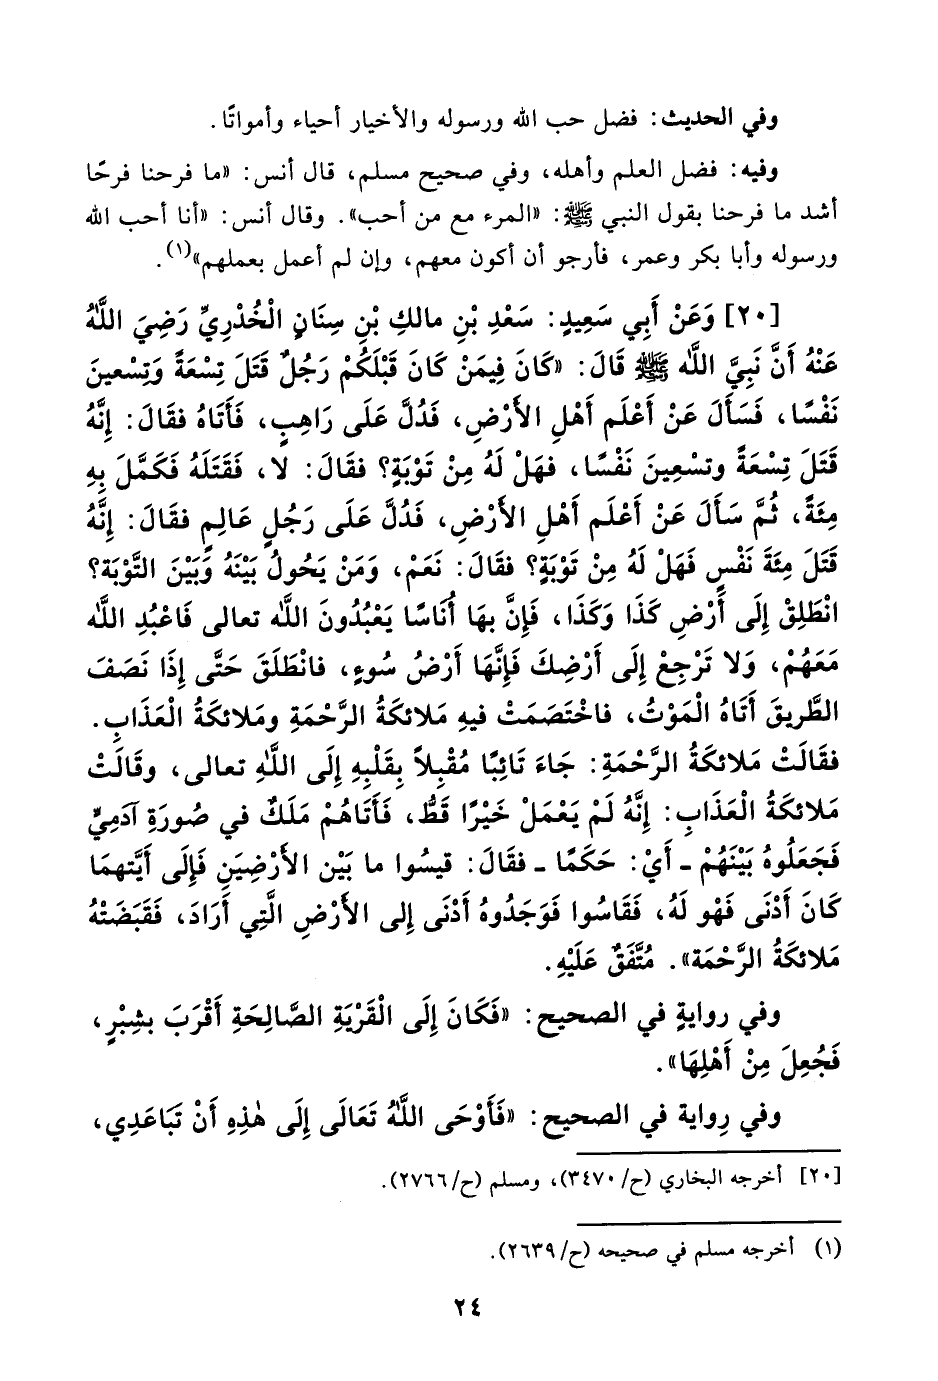 وفي الحديث: فضل حب الله ورسوله والأخيار أحياء وأمواتًا.
وفيه: فضل العلم وأهله، وفي صحيح مسلم، قال أنس: «ما فرحنا فرحًا
أشد ما فرحنا بقول النبي ﷺ: «المرء مع من أحب». وقال أنس: «أنا أحب الله
ورسوله وأبا بكر وعمر، فأرجو أن أكون معهم، وإن لم أعمل بعملهم»(١).
[٢٠] وَعَنْ أَبِي سَعِيدٍ: سَعْدِ بْنِ مالكِ بْنِ سِنَانٍ الْخُدْرِيِّ رَضِيَ اللَّهُ
عَنْهُ أَنَّ نَبِيَّ اللَّه ﷺ قَالَ: «كَانَ فِيمَنْ كَانَ قَبْلَكُمْ رَجُلٌ قَتَلَ تِسْعَةً وَتِسْعينَ
نَفْسًا، فَسَأَلَ عَنْ أَعْلَم أَهْلِ الأَرْضِ، فَدُلَّ عَلَى رَاهِبٍ، فَأَتَاهُ فقَالَ: إِنَّهُ
قَتَلَ تِسْعَةً وتسْعِينَ نَفْسًا، فهَلْ لَهُ مِنْ تَوْبَةٍ؟ فقَالَ: لا، فَقَتَلَهُ فَكَمَّلَ بِهِ
مِئَةً، ثُمَّ سَأَلَ عَنْ أَعْلَم أَهْلِ الأَرْضِ، فَدُلَّ عَلَى رَجُلٍ عَالِمٍ فقَالَ: إِنَّهُ
قَتَلَ مِئَةَ نَفْسٍ فَهَلْ لَهُ مِنْ تَوْبَةٍ؟ فقَالَ: نَعَمْ، وَمَنْ يَحُولُ بَيْنَهُ وَبَيْنَ التَّوْبَة؟
انْطَلِقْ إِلَى أَرْضِ كَذَا وَكَذَا، فَإِنَّ بهَا أُنَاسًا يَعْبُدُونَ اللَّه تعالى فَاعْبُدِ اللَّه
مَعَهُمْ، وَلا تَرْجِعْ إِلَى أَرْضِكَ فَإِنَّهَا أَرْضُ سُوءٍ، فانْطَلَقَ حَتَّى إِذَا نَصَفَ
الطَّرِيقَ أَتَاهُ الْمَوْتُ، فاخْتَصَمَتْ فيهِ مَلائكَةُ الرَّحْمَةِ ومَلائكَةُ الْعَذَابِ.
فقَالَتْ مَلائكَةُ الرَّحْمَةِ: جَاءَ تَائِبًا مُقْبِلاً بِقَلْبِهِ إِلَى اللَّهِ تعالى، وقَالَتْ
مَلائكَةُ الْعَذَابِ: إِنَّهُ لَمْ يَعْمَلْ خَيْرًا قَطُّ، فَأَتَاهُمْ مَلَكٌ في صُورَةِ آدَمِيٍّ
فَجَعَلُوهُ بَيْنَهُمْ ـ أَيْ: حَكَمًا ـ فقَالَ: قيسُوا ما بَيْن الأَرْضِيَنِ فَإِلَى أَيَّتهِما
كَانَ أَدْنَى فَهُو لَهُ، فَقَاسُوا فَوَجَدُوهُ أَدْنَى إلى الأَرْضِ الَّتِي أَرَادَ، فَقَبَضَتْهُ
مَلائكَةُ الرَّحْمَة». مُتَّفَقٌ عَلَيْهِ.
وفي روايةٍ في الصحيح: «فَكَانَ إِلَى الْقَرْيَةِ الصَّالِحَةِ أَقْرَبَ بشِبْرٍ،
فَجُعِلَ مِنْ أَهْلِهَا».
وفي رِواية في الصحيح: «فَأَوْحَى اللَّهُ تَعَالَى إِلَى هٰذِهِ أَنْ تَبَاعَدِي،
[٢٠] أخرجه البخاري (ح/٣٤٧٠)، ومسلم (ح/٢٧٦٦).
(١) أخرجه مسلم في صحيحه (ح/٢٦٣٩).
٢٤